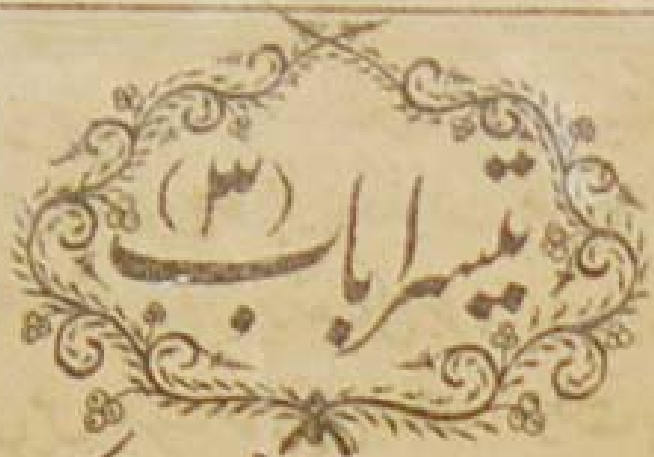 تیسرا باب (۳)